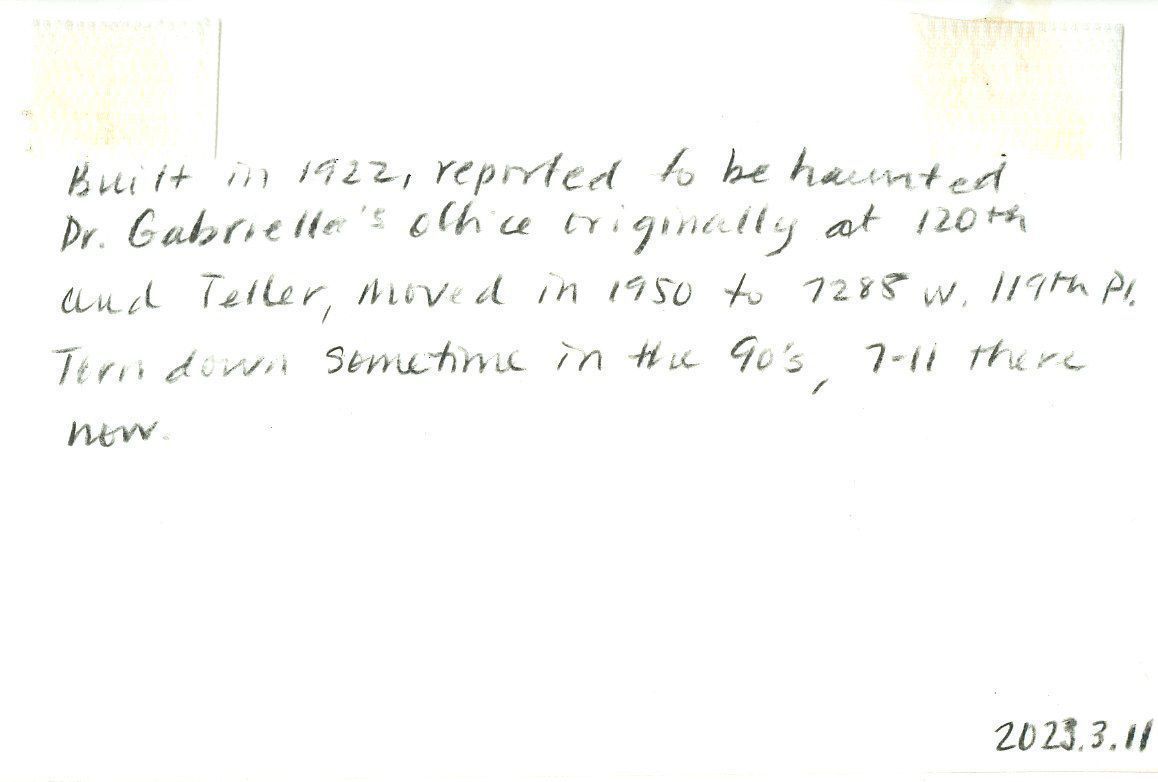 Built in 1922, reported to be haunted
Dr. Gabriella's office originally at 120th
and Teller, Moved in 1950 to 7285 W. 119th Pl.
Torn down sometime in the 90's, 7-11 there
now.
2023.3.11